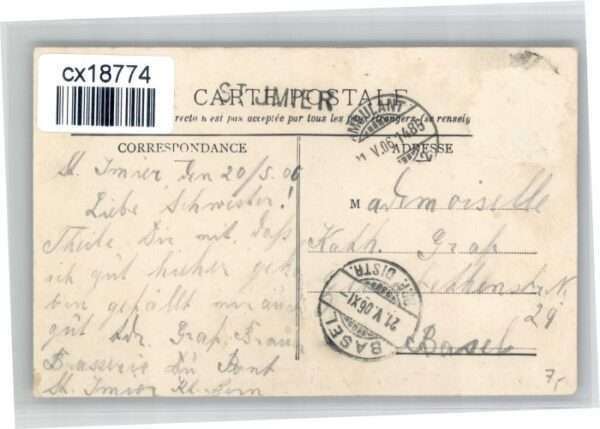 cx18774
CARTE POSTALE
ST IMIER
recto n'est pas acceptée par tous les pays étrangers (se renseig
CORRESPONDANCE
ADRESSE
AMBULANT
V.06 1485
St. Imier den 20/5. 06
Liebe Schwester!
Theile Dir mit. Dass
ich güt hieher geko
gefällt mir auch
güt Adr. Graf Franz
Brasserie Du Pont
St Imier Kt. Bern
Mademoiselle
Kath. Graf
N.
29
Basel
DISTR.
21.V.06 XI-
BASEL
7,-